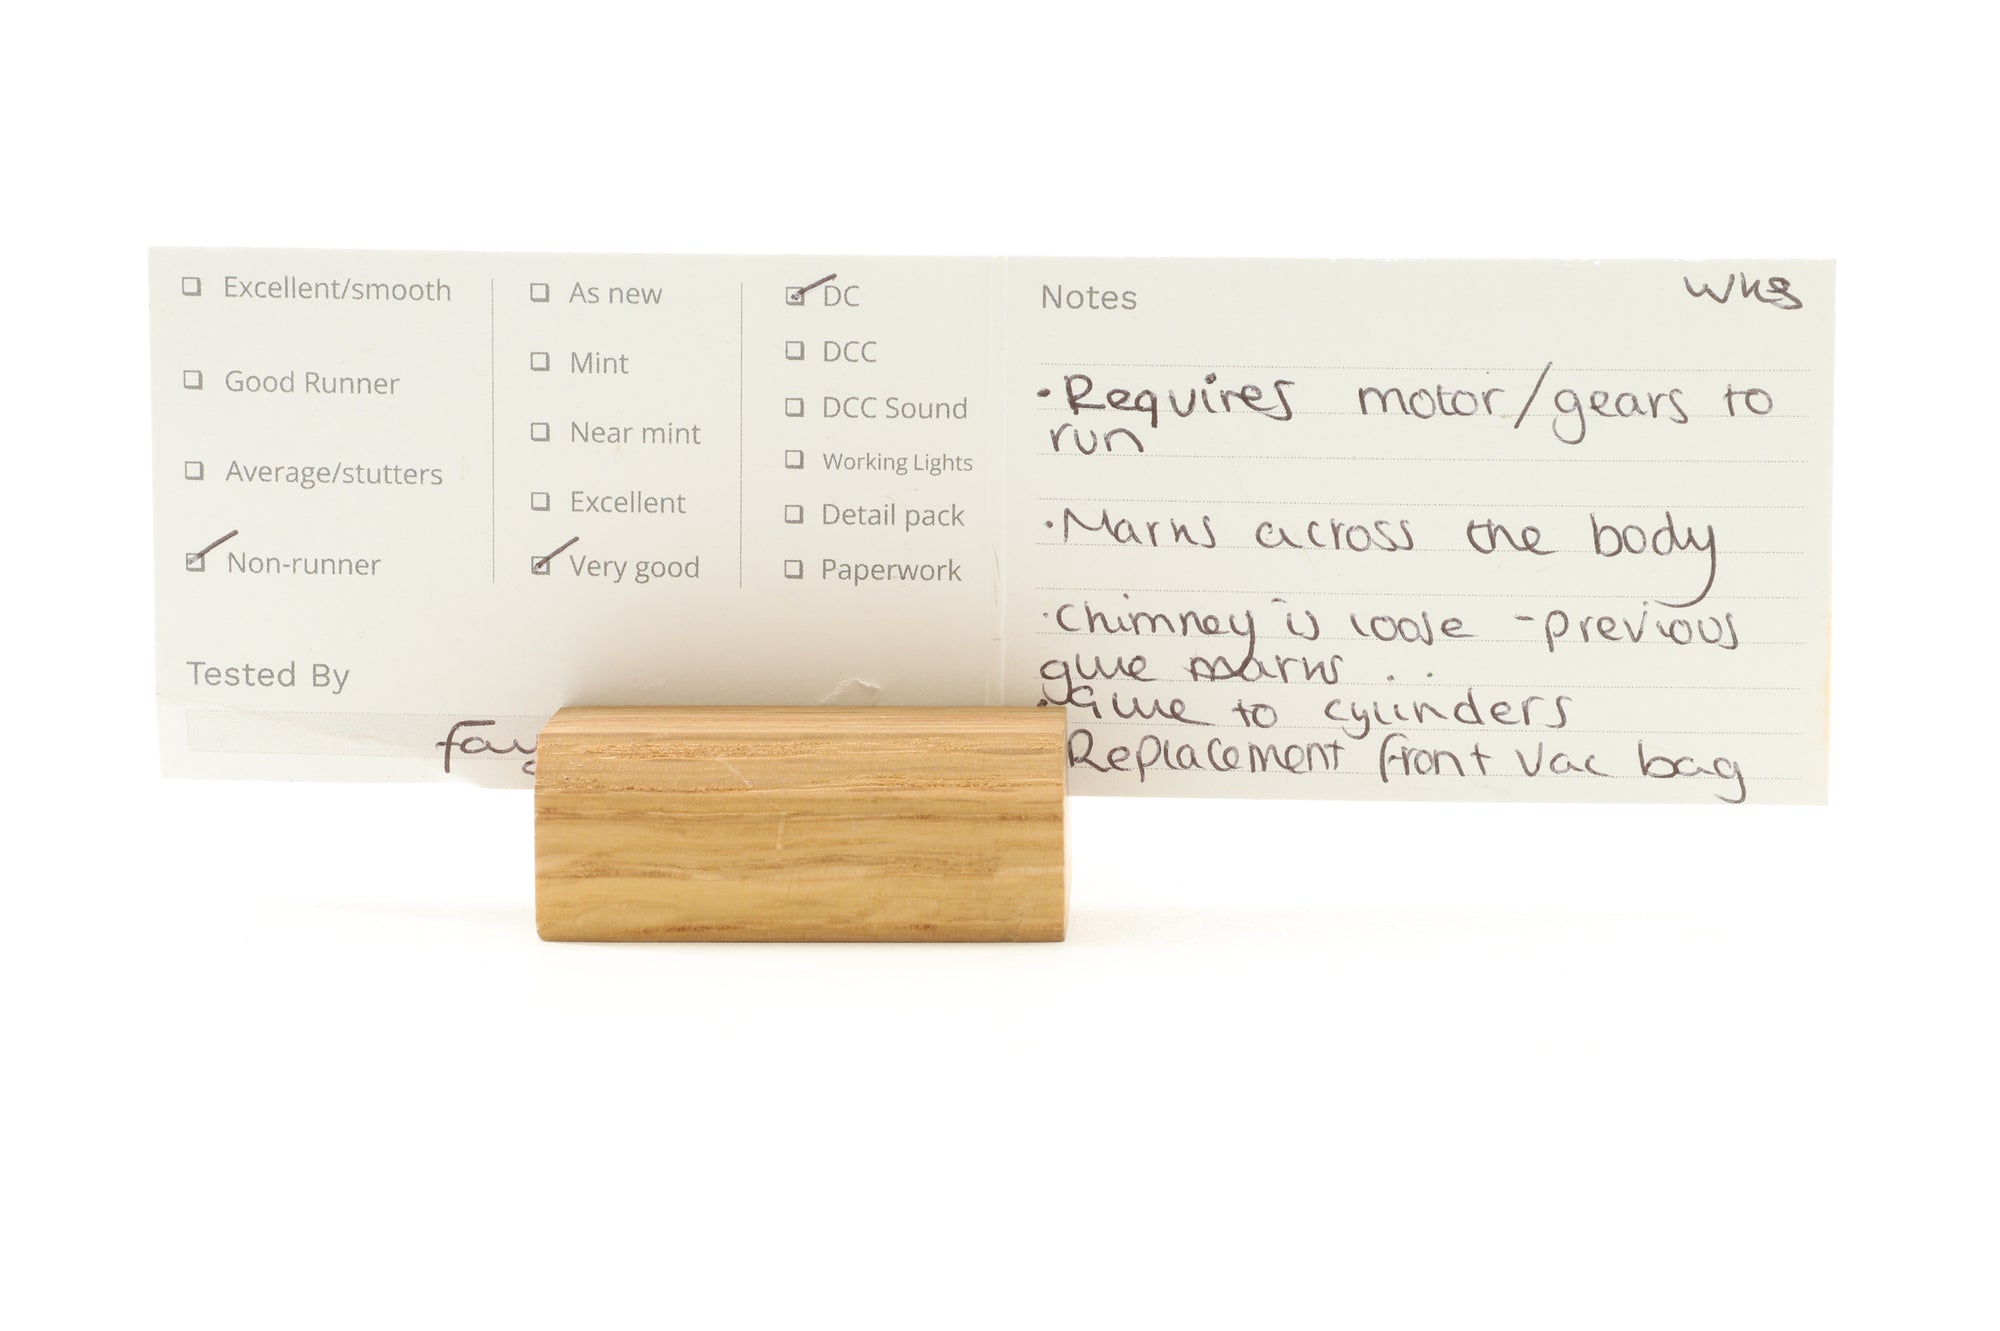 Excellent/smooth
Good Runner
Average/stutters
Non-runner
As new
Mint
Near mint
Excellent
Very good
DC
DCC
DCC Sound
Working Lights
Detail pack
Paperwork
Tested By
Notes
·Requires motor/gears to
run
·Marks across the body
·Chimney is loose - previous
glue marks ..
·Glue to cylinders
Replacement front vac bag